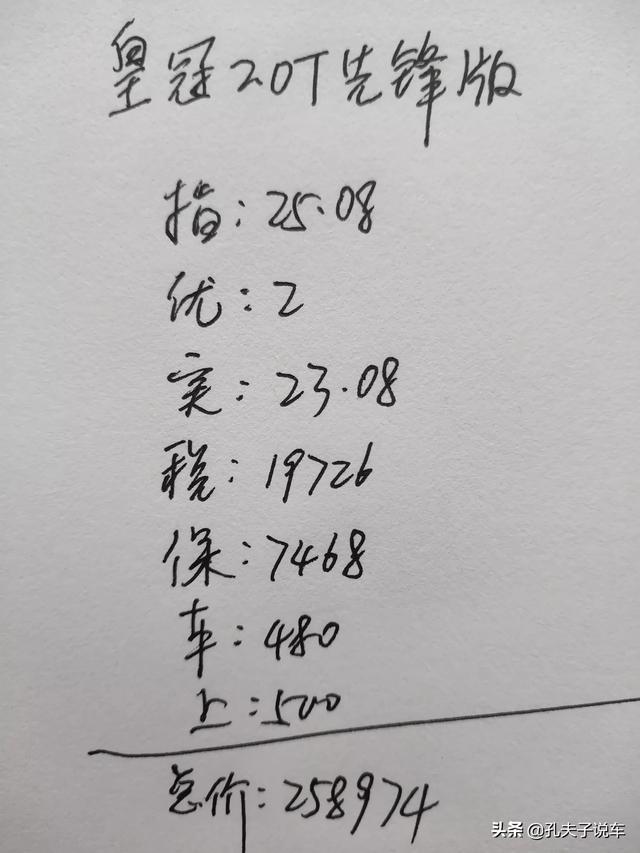 皇冠2.0T先锋版
指:25.08
优:2
实:23.08
税:19726
保:7468
车:480
上:500
总价:258974
头条 @孔夫子说车